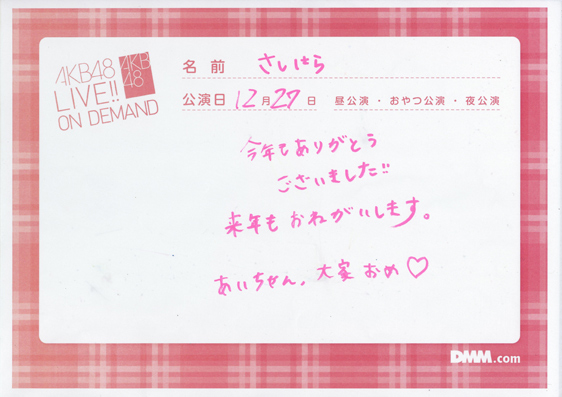 AKB48
LIVE!!
ON DEMAND
AKB
48
名前 さいとら
公演日 12月27日 昼公演・おやつ公演・夜公演
今年もありがとう
ございました!!
来年もおねがいします。
あいちゃん、大家おめ♡
DMM.com